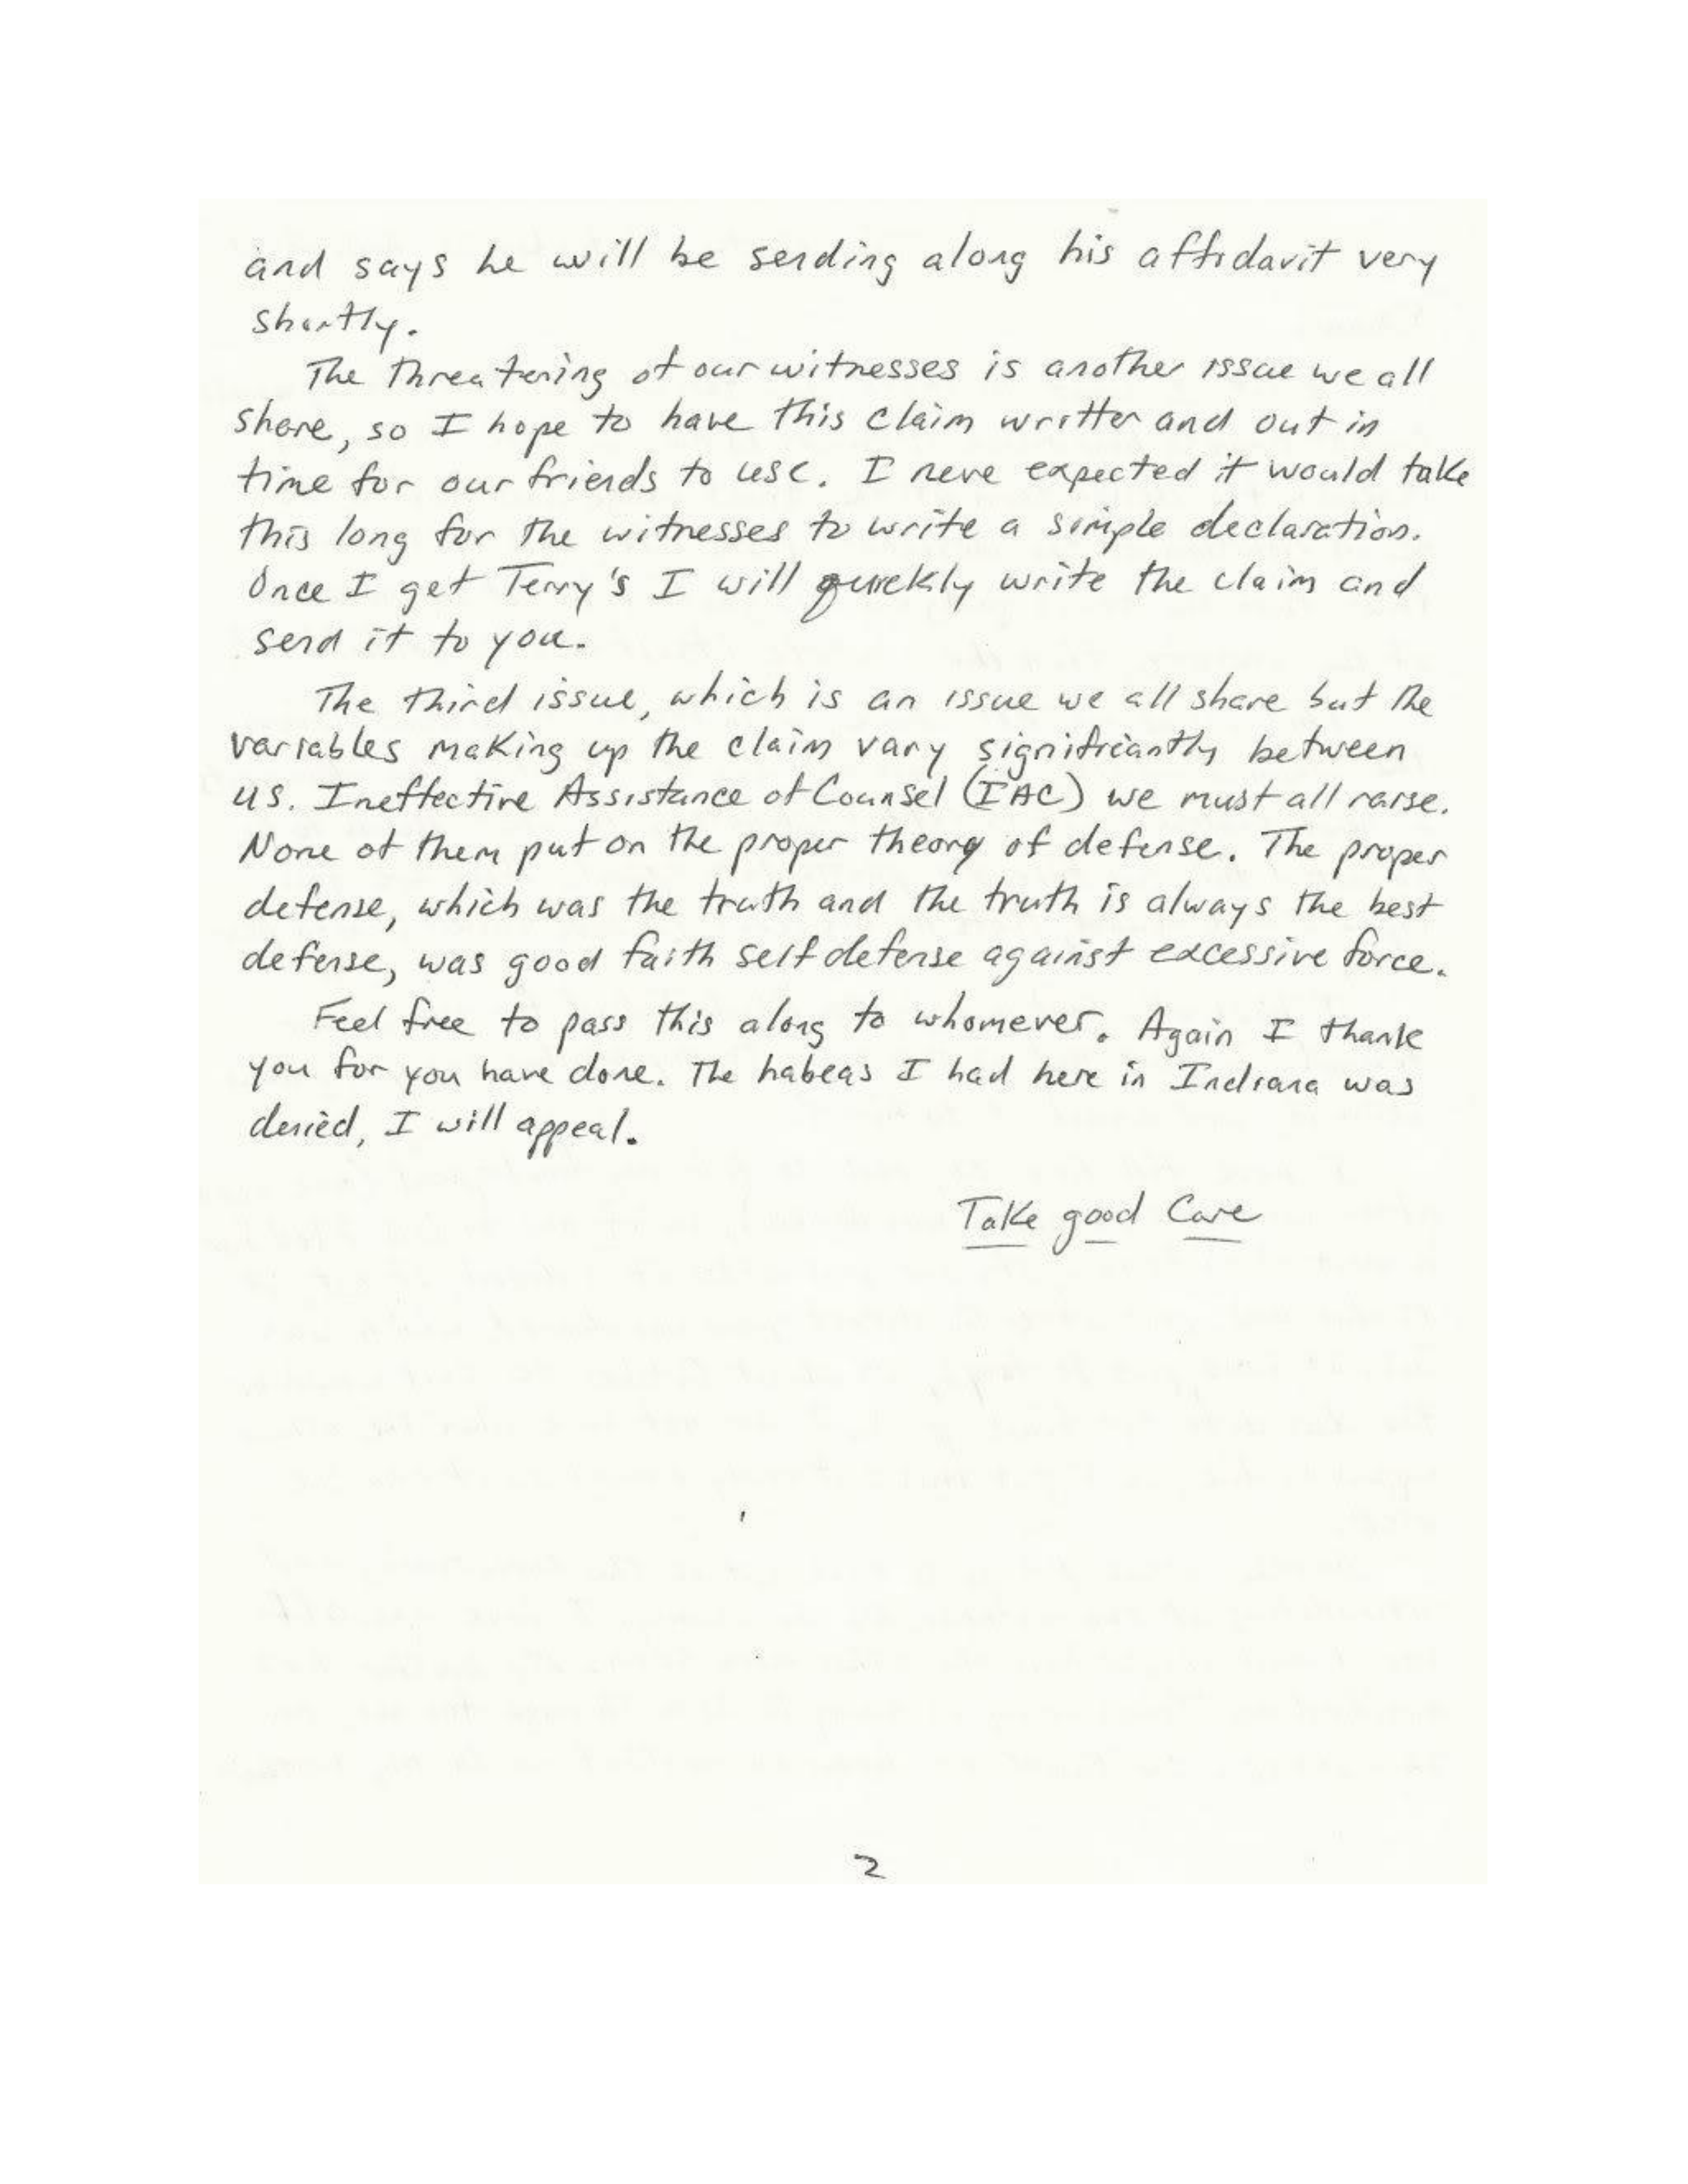 and says he will be sending along his affidavit very
shortly.
The threatening of our witnesses is another issue we all
share, so I hope to have this claim written and out in
time for our friends to use. I neve expected it would take
this long for the witnesses to write a simple declaration.
Once I get Terry's I will quickly write the claim and
send it to you.
The third issue, which is an issue we all share but the
variables making up the claim vary significantly between
us. Ineffective Assistance of Counsel (IAC) we must all raise.
None of them put on the proper theory of defense. The proper
defense, which was the truth and the truth is always the best
defense, was good faith self defense against excessive force.
Feel free to pass this along to whomever. Again I thank
you for you have done. The habeas I had here in Indiana was
denied, I will appeal.
Take good Care
2